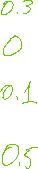 0.3
0
0.1
0.5